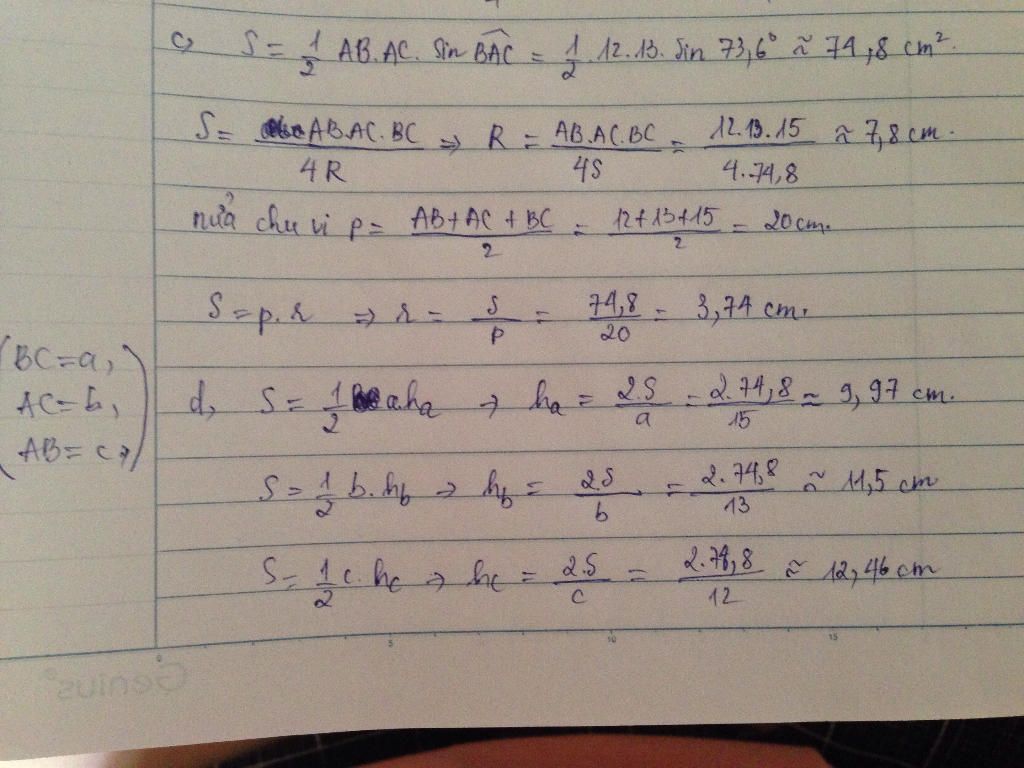 c, S = 1/2 AB.AC. Sin BAC = 1/2 .12.13. Sin 73,6° ≈ 74,8 cm².
S = AB.AC.BC / 4R => R = AB.AC.BC / 4S = 12.13.15 / 4.74,8 ≈ 7,8 cm.
nửa chu vi p = AB+AC+BC / 2 = 12+13+15 / 2 = 20cm.
S = p.r => r = S / p = 74,8 / 20 = 3,74 cm.
(BC = a,
AC = b,
AB = c,)
d, S = 1/2 a ha → ha = 2.S / a = 2.74,8 / 15 ≈ 9,97 cm.
S = 1/2 b.hb → hb = 2S / b = 2.74,8 / 13 ≈ 11,5 cm
S = 1/2 c.hc → hc = 2.S / c = 2.74,8 / 12 ≈ 12,46 cm
0 5 10 15
Genius